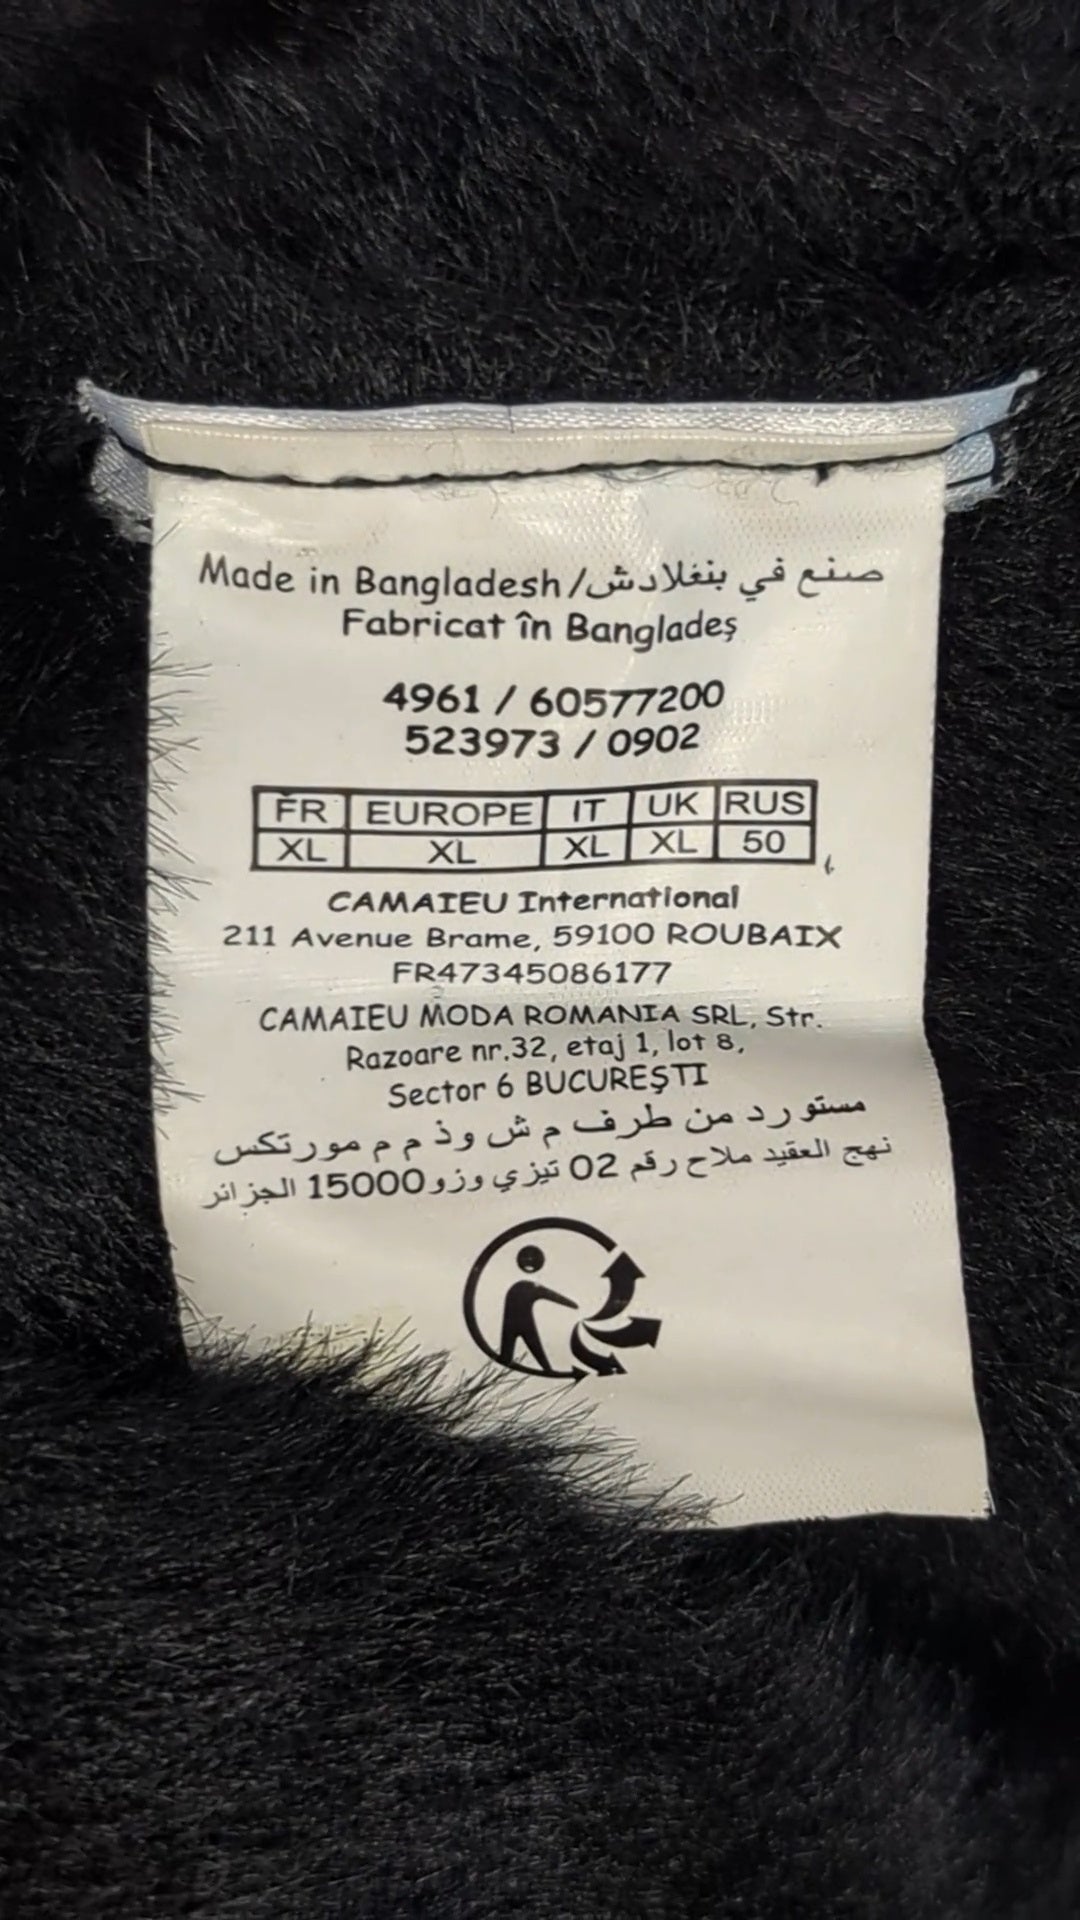 Made in Bangladesh/صنع في بنغلادش
Fabricat în Bangladeş
4961 / 60577200
523973 / 0902
FR EUROPE IT UK RUS
XL XL XL XL 50
CAMAIEU International
211 Avenue Brame, 59100 ROUBAIX
FR47345086177
CAMAIEU MODA ROMANIA SRL, Str.
Razoare nr.32, etaj 1, lot 8,
Sector 6 BUCUREŞTI
مستورد من طرف م ش وذ م م مورتكس
نهج العقيد ملاح رقم 02 تيزي وزو 15000 الجزائر